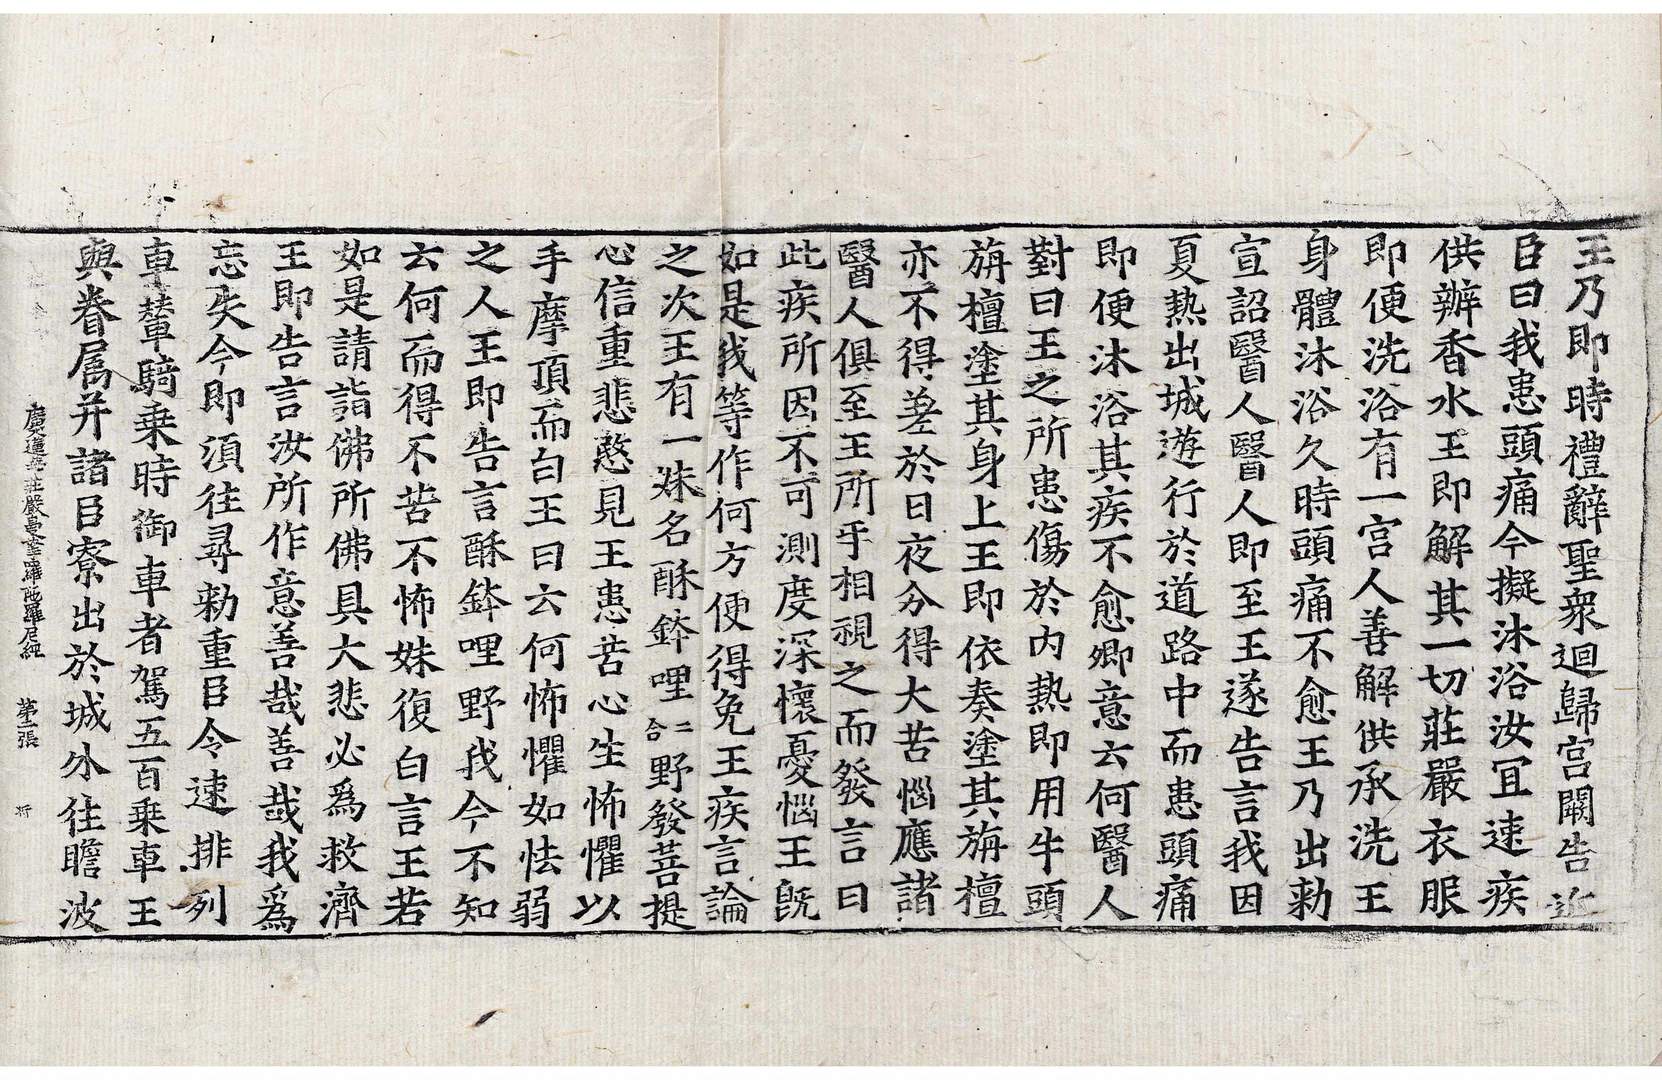 王乃即時禮辭聖衆迴歸宮闕告近
臣曰我患頭痛今擬沐浴汝宜速疾
供辦香水王即解其一切莊嚴衣服
即便洗浴有一宮人善解供承洗王
身體沐浴久時頭痛不愈王乃出勑
宣詔醫人醫人即至王遂告言我因
夏熱出城遊行於道路中而患頭痛
即便沐浴其疾不愈卿意云何醫人
對曰王之所患傷於内熱即用牛頭
旃檀塗其身上王即依奏塗其旃檀
亦不得差於日夜分得大苦惱應諸
醫人俱至王所乎相視之而發言曰
此疾所因不可測度深懷憂惱王旣
如是我等作何方便得免王疾言論
之次王有一妹名酥鉢哩二合野發菩提
心信重悲愍見王患苦心生怖懼以
手摩頂而白王曰云何怖懼如怯弱
之人王即告言酥鉢哩野我今不知
云何而得不苦不怖妹復白言王若
如是請詣佛所佛具大悲必爲救濟
王即告言汝所作意善哉善哉我爲
忘失今即須往尋勑重臣令速排列
車輦騎乗時御車者駕五百乗車王
與眷属并諸臣寮出於城外往瞻波
廣蓮華莊嚴曼拏羅陁羅尼経　第二張